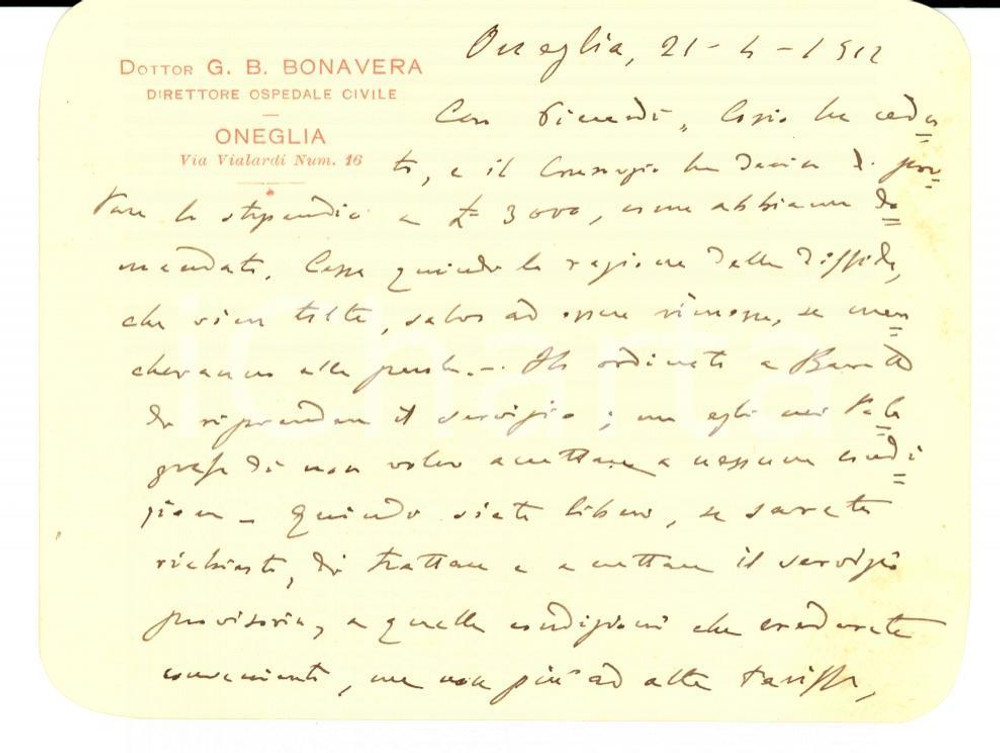 DOTTOR G. B. BONAVERA
DIRETTORE OSPEDALE CIVILE
ONEGLIA
Via Vialardi Num. 16
Oneglia, 21-4-1912
Caro Vicendi, Cosio ha cedu
to, e il Consorzio ha deciso di por
tare lo stipendio a L 3000, come abbiamo do
mandato. Cessa quindi la ragione della diffida,
che vien tolta, salvo ad essere rimessa, se man
cheranno alla parola.- Ho ordinato a
di riprendere il servizio; ma egli mi tele
grafa di non voler accettare a nessuna condi
zione - Quindi siete libero, se sarete
richiesto, di trattare e accettare il servizio
provvisorio, a quelle condizioni che crederete
convenienti, ma non più ad alta tariffa,
iCharta